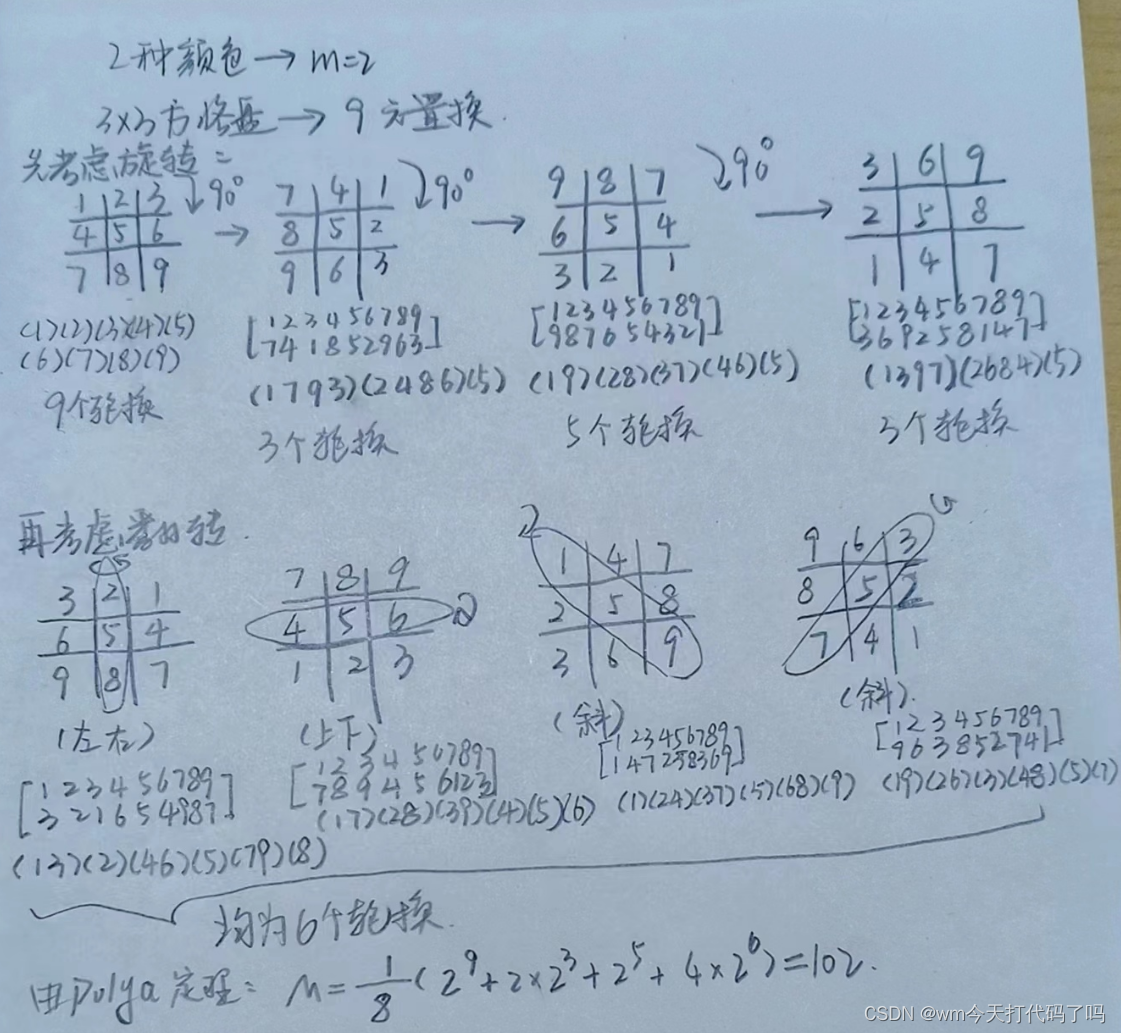 2种颜色→m=2
3×3方格盘→9元置换.
先考虑旋转:
1 2 3 ↓90° 7 4 1 ↓90° 9 8 7 ↓90° 3 6 9
4 5 6 → 8 5 2 → 6 5 4 → 2 5 8
7 8 9 9 6 3 3 2 1 1 4 7
(1)(2)(3)(4)(5) [1 2 3 4 5 6 7 8 9 [1 2 3 4 5 6 7 8 9 [1 2 3 4 5 6 7 8 9
(6)(7)(8)(9) 7 4 1 8 5 2 9 6 3] 9 8 7 6 5 4 3 2 1] 3 6 9 2 5 8 1 4 7]
(1793)(2486)(5) (19)(28)(37)(46)(5) (1397)(2684)(5)
9个轮换 3个轮换 5个轮换 3个轮换
再考虑翻转.
3 2 1 7 8 9 1 4 7 9 6 3
6 5 4 4 5 6 2 5 8 8 5 2
9 8 7 1 2 3 3 6 9 7 4 1
(左右) (上下) (斜) (斜).
[1 2 3 4 5 6 7 8 9 [1 2 3 4 5 6 7 8 9 [1 2 3 4 5 6 7 8 9 [1 2 3 4 5 6 7 8 9
3 2 1 6 5 4 9 8 7] 7 8 9 4 5 6 1 2 3] 1 4 7 2 5 8 3 6 9] 9 6 3 8 5 2 7 4 1]
(17)(28)(39)(4)(5)(6) (1)(24)(37)(5)(68)(9) (19)(26)(3)(48)(5)(7)
(13)(2)(46)(5)(79)(8)
均为6个轮换.
由Polya定理: M=1/8(2⁹+2×2³+2⁵+4×2⁶)=102.
CSDN @wm今天打代码了吗